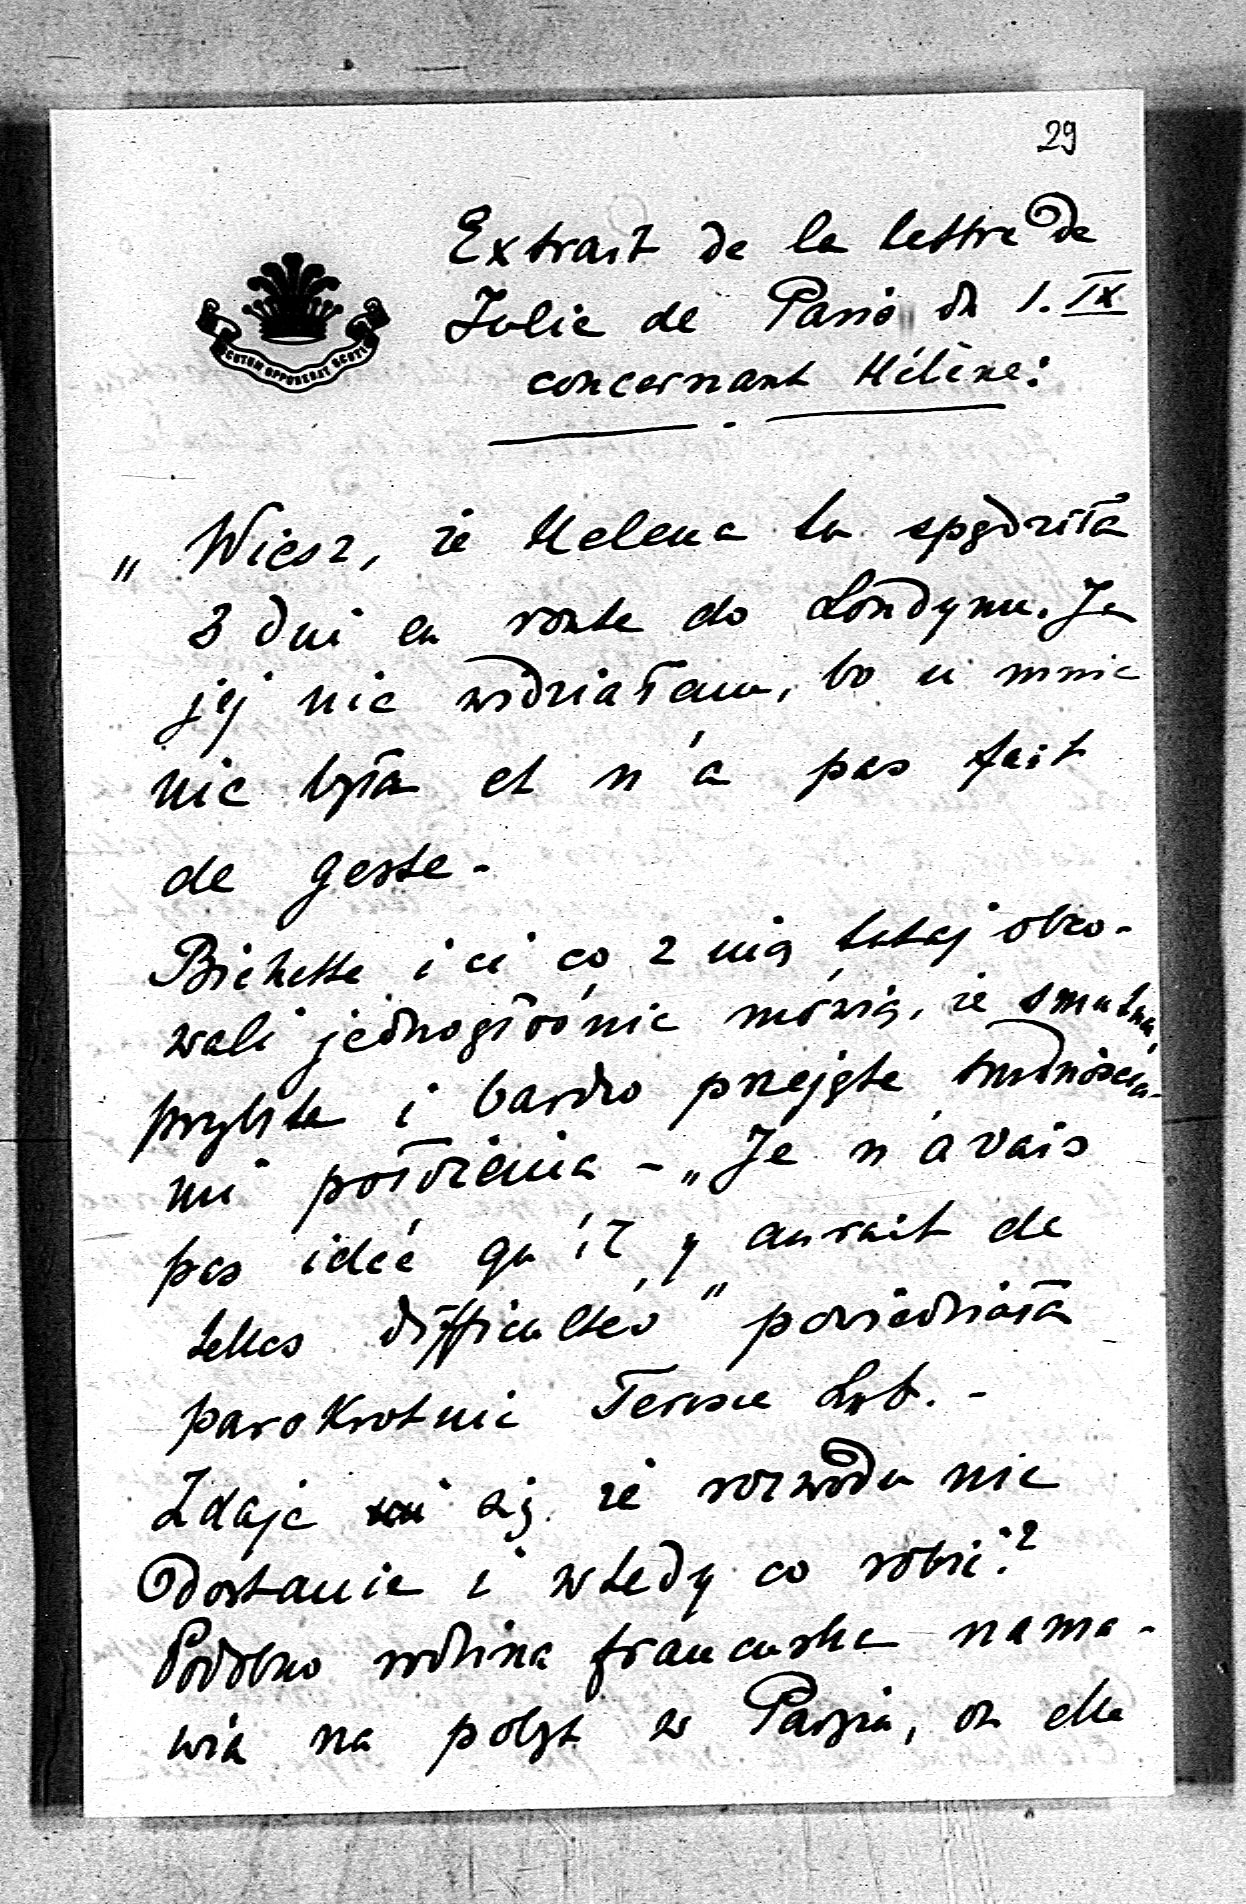 29
Extrait de la lettre de
Julie de Paris du 1. IX
concernant Hélène:
SCUTUM OPPONEBAT SCOTIS
„Wiesz, że Helena tu spędziła
3 dni en route do Londynu. Ja
jej nie widziałam, bo u mnie
nie była et n'a pas fait
de geste -
Bichette i ci co z nią tutaj obco-
wali jednogłośnie mówią, że smutna,
przybita i bardzo przejęta trudnościa-
mi położenia - „Je n'avais
pas ideé qu'il y aurait de
telles difficultés" powiedziała
parokrotnie Teresie Lub. -
Zdaje się że rozwodu nie
dostanie i wtedy co robić?
Podobno rodzina francuska nama-
wia na pobyt w Paryżu, où elle